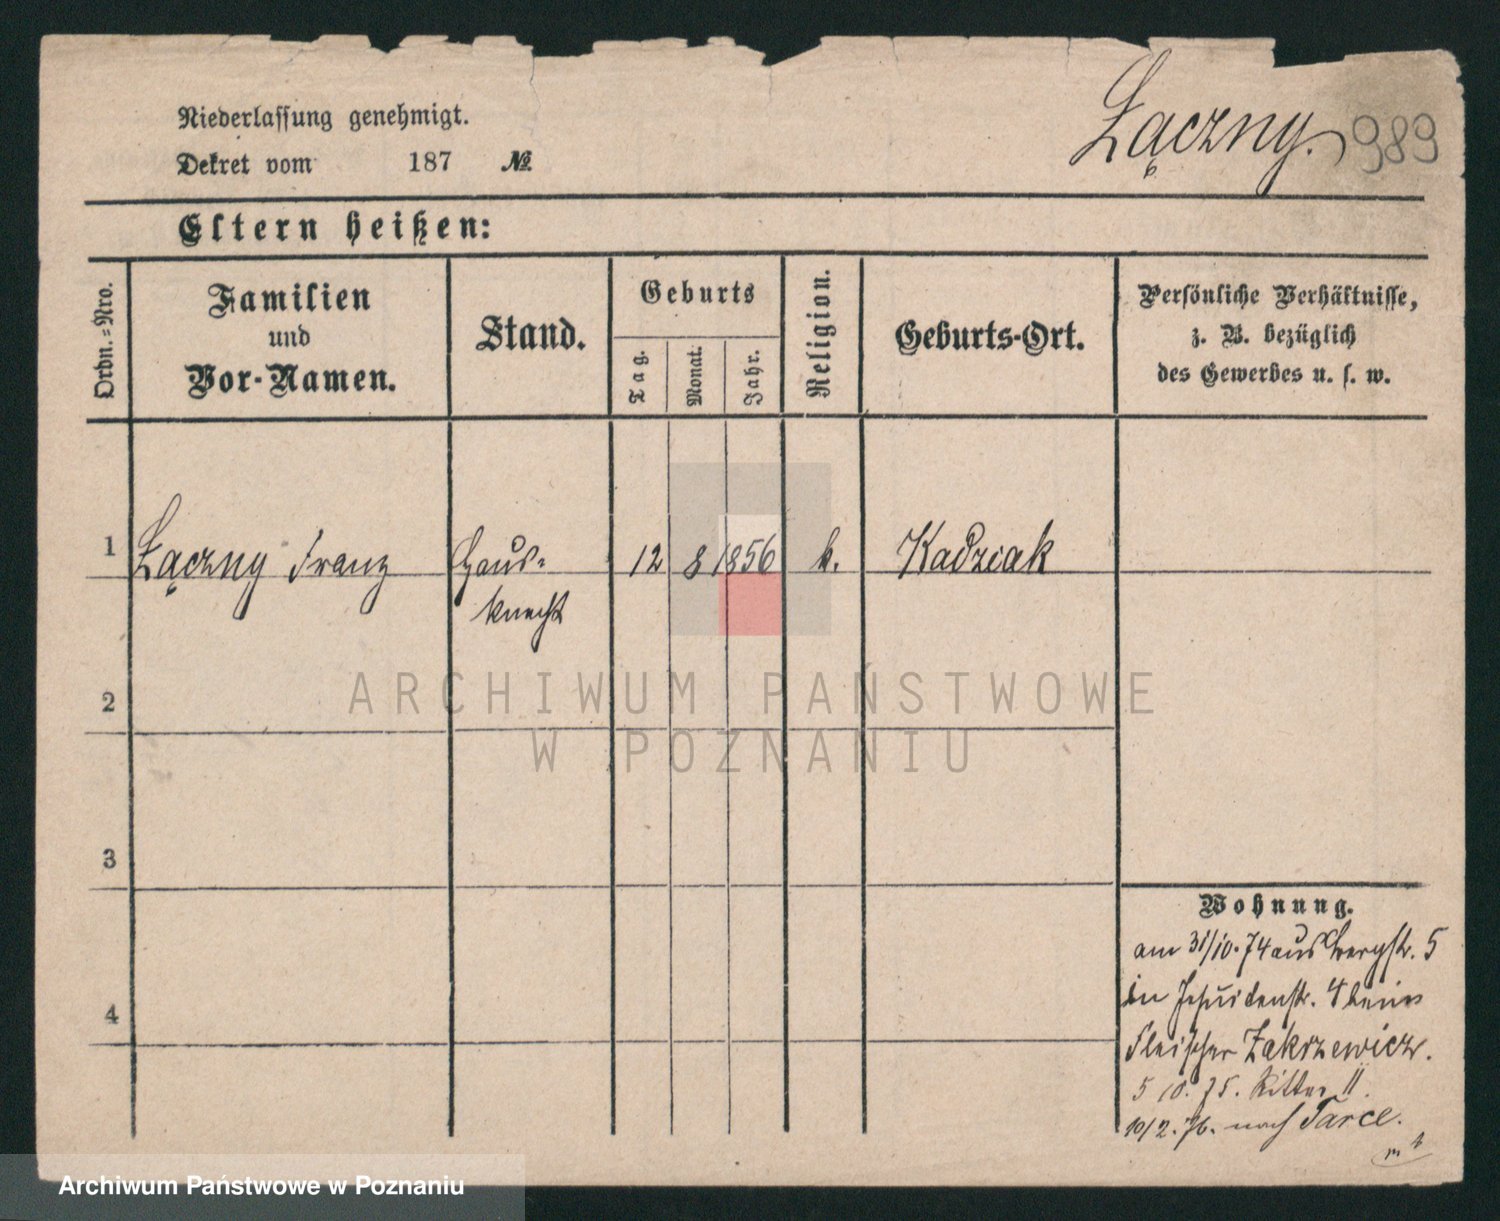 Łączny. 989
Niederlassung genehmigt.
Dekret vom 187 №
Eltern heißen:
Ordn.=Nro.
Familien
und
Vor-Namen.
Stand.
Geburts
Tag.
Monat.
Jahr.
Religion.
Geburts-Ort.
Persönliche Verhältnisse,
z. B. bezüglich
des Gewerbes u. s. w.
1 Łączny Franz Haus- 12 8 1856 k. Kadziak
knecht
2
3
4
ARCHIWUM PAŃSTWOWE
W POZNANIU
Wohnung.
am 31/10.74 aus Bergstr. 5
in Jesuitenstr. 4 beim
Fleischer Zakrzewicz.
5 10. 75. Ritter 11.
10/2. 76. nach Tarce.
Archiwum Państwowe w Poznaniu